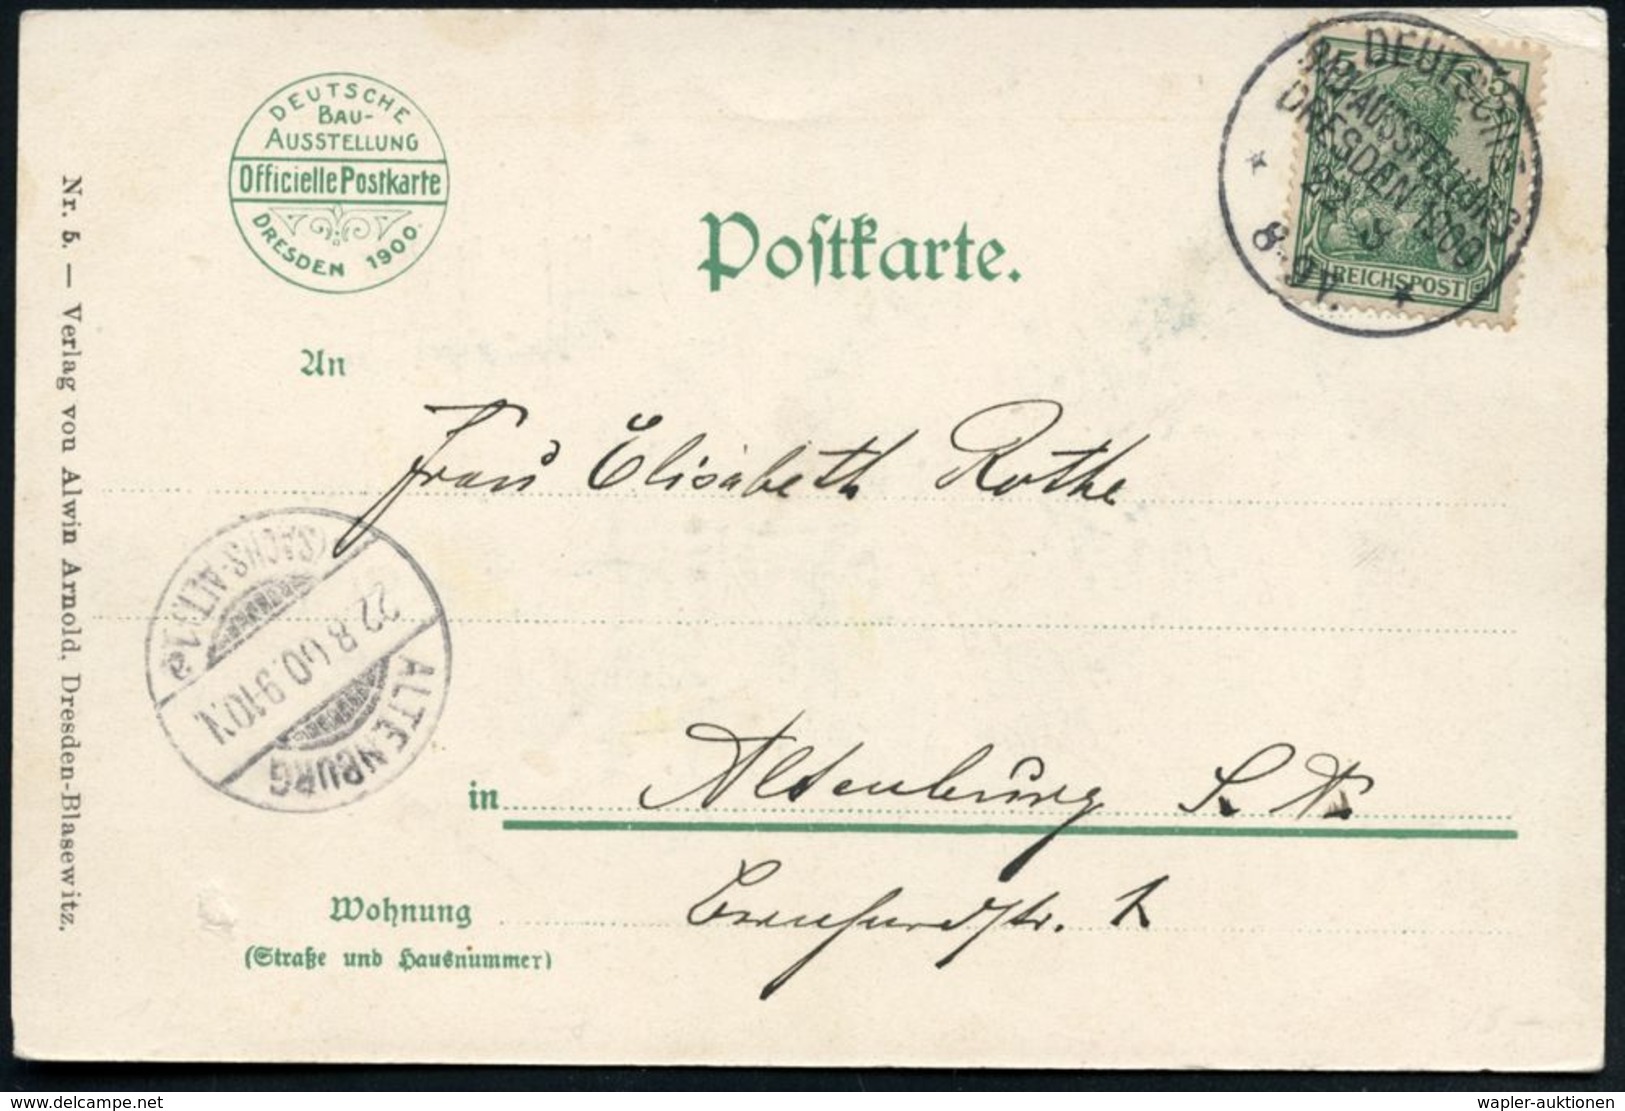 DEUTSCHE
BAU-
AUSSTELLUNG
Officielle Postkarte
DRESDEN 1900.
DEUTSCHE
BAUAUSSTELLUNG
DRESDEN 1900
22 8
8-9V.
5
REICHSPOST
Postkarte.
An
Frau Elisabeth Rothe
(SACHS-ALT.) 1a
22.8.00.9-10N.
ALTENBURG
in Altenburg S. A.
Wohnung
(Straße und Hausnummer)
Nr. 5. — Verlag von Alwin Arnold, Dresden-Blasewitz.
www.delcampe.net
wapler-auktionen